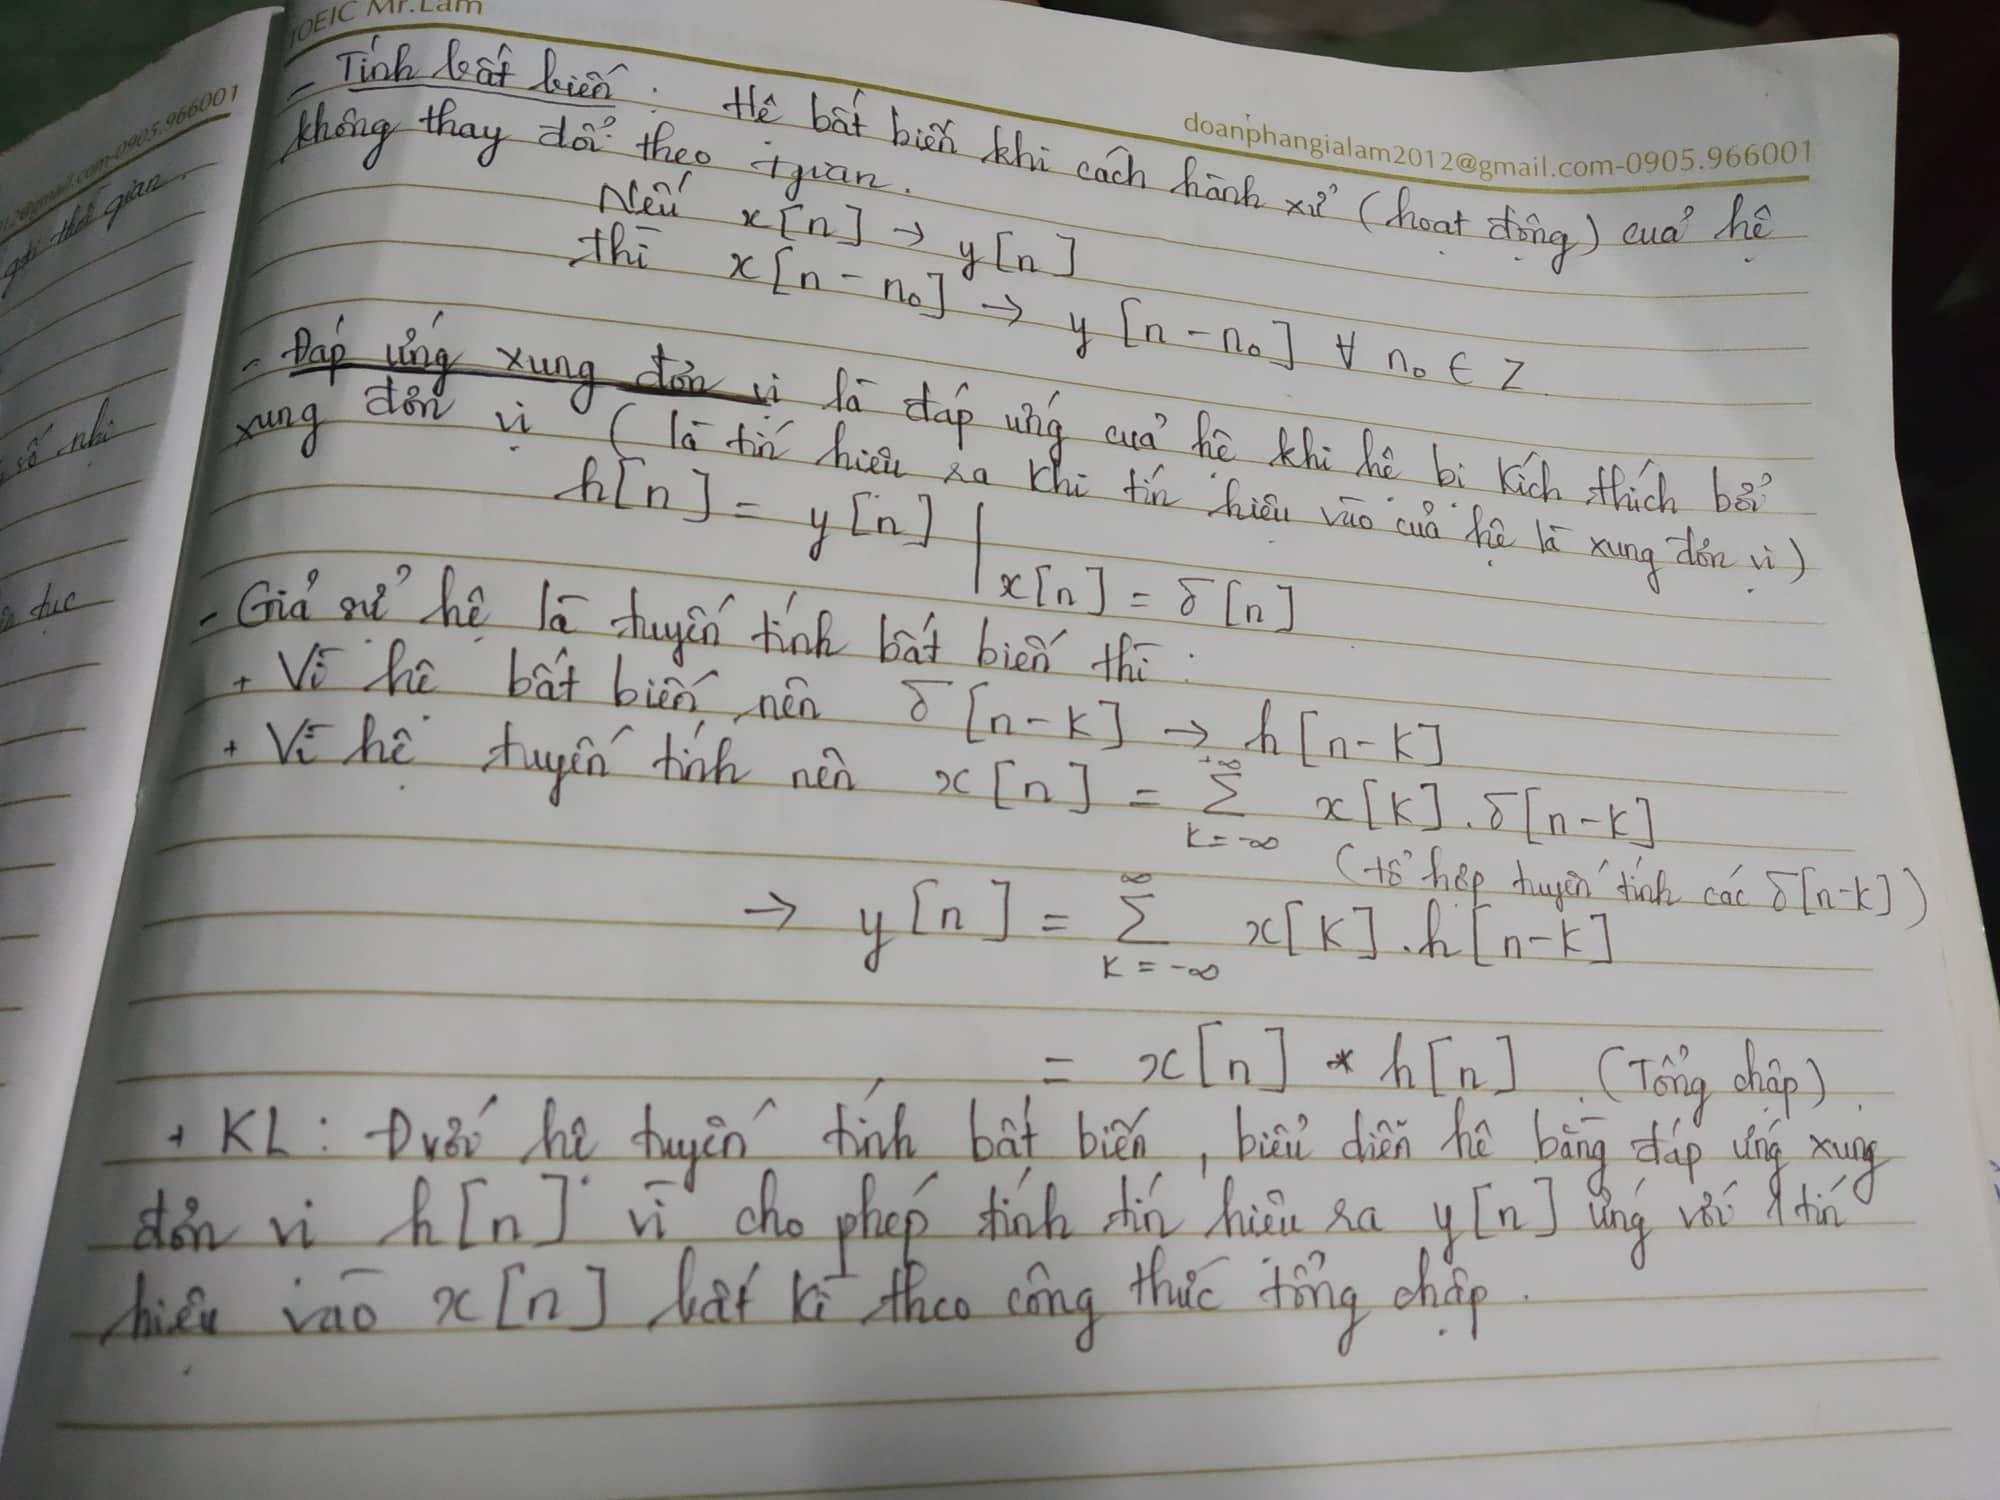 TOEIC Mr.Lam
doanphangialam2012@gmail.com-0905.966001
- Tính bất biến: Hệ bất biến khi cách hành xử (hoạt động) của hệ
không thay đổi theo tgian.
Nếu x[n] → y[n]
thì x[n - n₀] → y[n - n₀] ∀ n₀ ∈ Z
- Đáp ứng xung đơn vị là đáp ứng của hệ khi hệ bị kích thích bởi
xung đơn vị (là tín hiệu ra khi tín hiệu vào của hệ là xung đơn vị)
h[n] = y[n] | x[n] = δ[n]
- Giả sử hệ là tuyến tính bất biến thì:
+ Vì hệ bất biến nên δ[n-k] → h[n-k]
+ Vì hệ tuyến tính nên x[n] = +∞ Σ k=-∞ x[k].δ[n-k]
(tổ hợp tuyến tính các δ[n-k])
→ y[n] = ∞ Σ k=-∞ x[k].h[n-k]
= x[n] * h[n] (Tổng chập)
+ KL: Đ với hệ tuyến tính bất biến, biểu diễn hệ bằng đáp ứng xung
đơn vị h[n] vì cho phép tính tín hiệu ra y[n] ứng với 1 tín
hiệu vào x[n] bất kì theo công thức tổng chập.
12@gmail.com-0905.966001
thời gian.
số nhị
tục